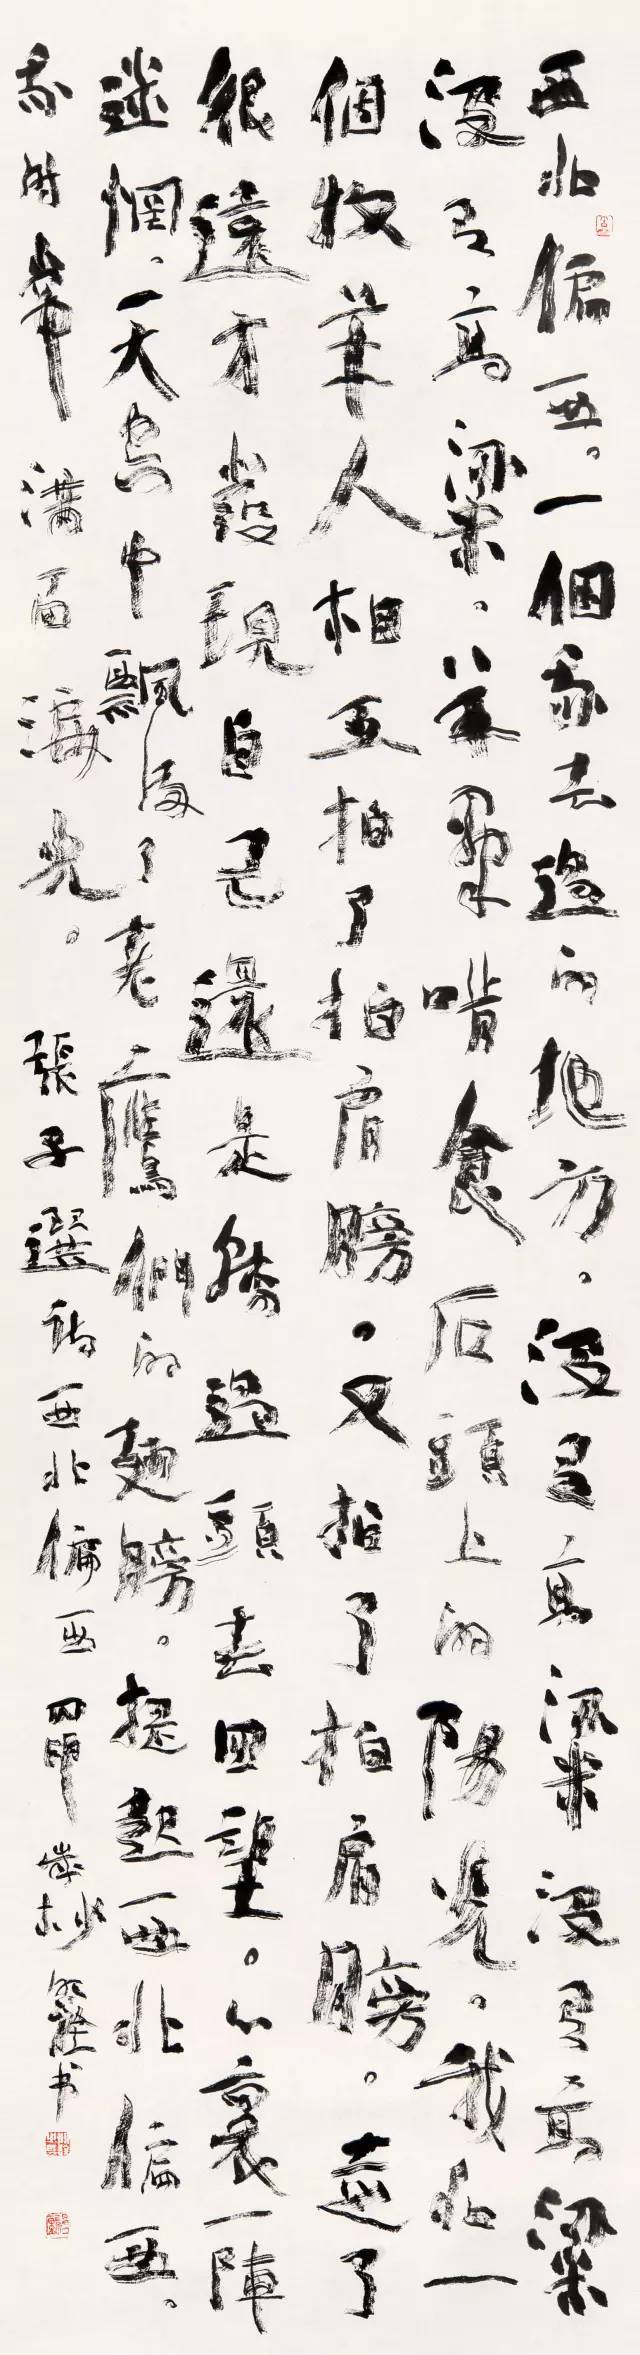 西北偏西。一個我去過的地方。沒有高粱沒有高粱
沒有高粱。羊群啃食石頭上的陽光。我和一
個牧羊人相互拍了拍肩膀。又拍了拍肩膀。走了
很遠才發現自己還是轉過頭去回望。心裏一陣
迷惘。天空中飄滿了老鷹們的翅膀。提起西北偏西。
我時常滿面淚光。張子選詩西北偏西 歲杪 書